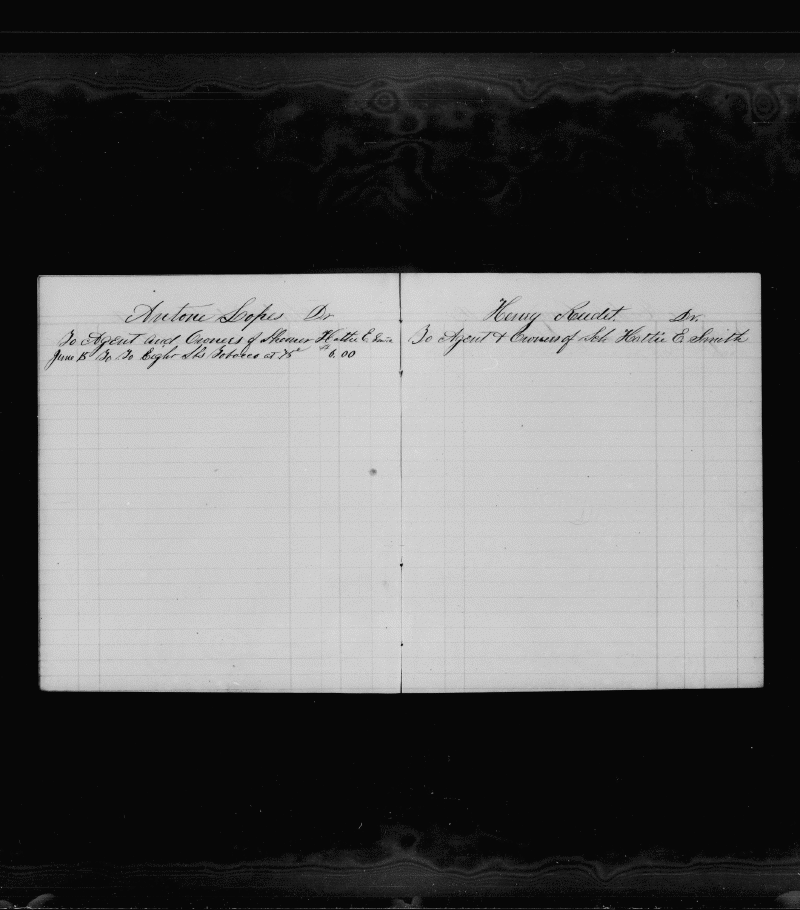 Antone Lopes Dr
To Agent and Owners of Shooner Hattie E. Smith
June 15 To To Eight Lbs Tobacco at 75c $6.00
Henry Dr.
To Agent & Owners of Sch Hattie E Smith